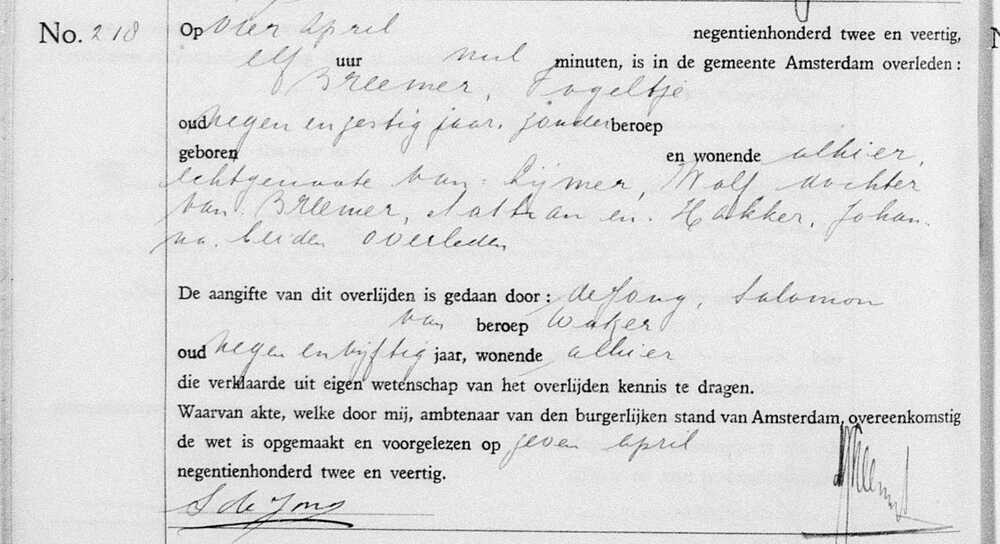 No. 218
Op vier april negentienhonderd twee en veertig,
elf uur nul minuten, is in de gemeente Amsterdam overleden :
Breemer, Vogeltje
oud negen en zestig jaar, zonder beroep
geboren en wonende alhier,
echtgenoote van Rijmer, Wolf dochter
van Breemer, Nathan en Hakker, Johan-
na, beiden overleden
De aangifte van dit overlijden is gedaan door : de Jong, Salomon
van beroep waker
oud negen en vijftig jaar, wonende alhier
die verklaarde uit eigen wetenschap van het overlijden kennis te dragen.
Waarvan akte, welke door mij, ambtenaar van den burgerlijken stand van Amsterdam, overeenkomstig
de wet is opgemaakt en voorgelezen op zeven april
negentienhonderd twee en veertig.
S de Jong